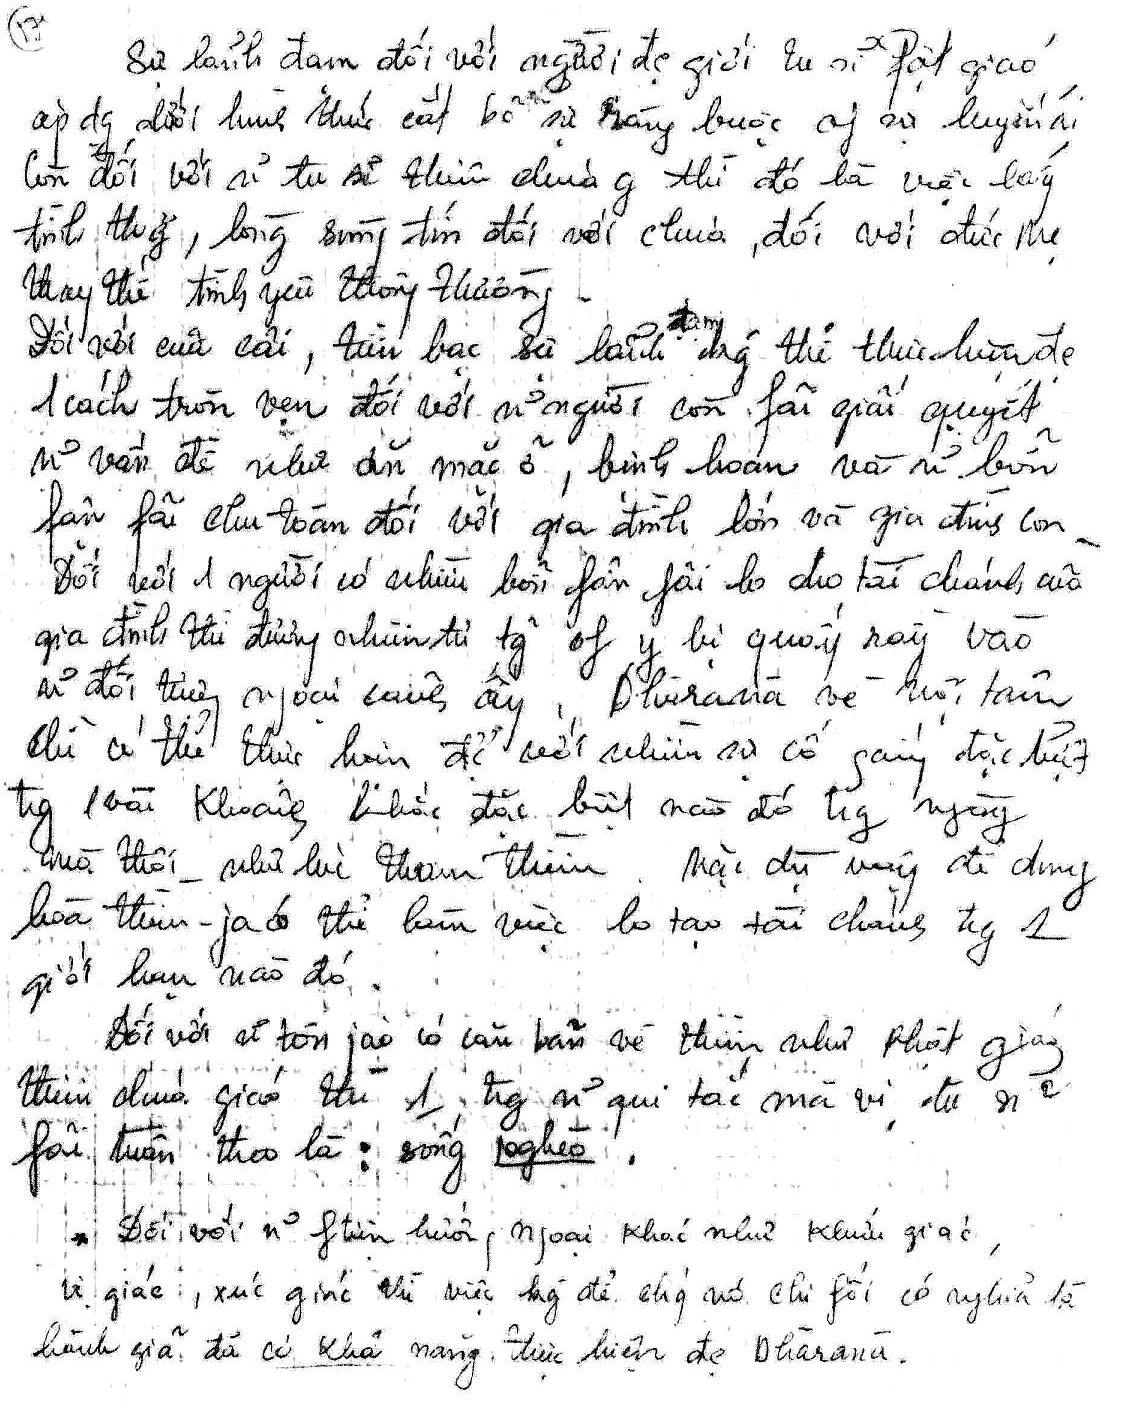 17
Sự lãnh đạm đối với người đẹ giới tu sĩ fật giáo
áp dg dưới hình thức cắt bỏ sự ràng buộc of sự luyến ái
Còn đối với n~ tu sĩ thiên chúa g thì đó là việc lấy
tình thg, lòng sùng tín đối với chúa, đối với đức Mẹ
thay thế tình yêu thông thường.
Đối với của cải, tiền bạc sự lãnh đạm kg thể thực hiện đc
1 cách trọn vẹn đối với n~ người còn fải giải quyết
n~ vấn đề như ăn mặc ở, bịnh hoạn và n~ bổn
fận fải chu toàn đối với gia đình lớn và gia đình con_
Đối với 1 người có nhiều bổn fận fải lo cho tài chánh của
gia đình thì đương nhiên tư tg of y bị quấy rầy vào
n~ đối tượng ngoại cảnh ấy, Dhāranā về nội tâm
chỉ có thể thực hiện đc với nhiều sự cố gắng đặc biệt
trg 1 vài khoảng khắc đặc biệt nào đó trg ngày
mà thôi_ như lúc tham thiền. Mặc dù vậy để dung
hoà thiền-ja có thể làm việc lo tạo tài chánh trg 1
giới hạn nào đó.
Đối với n~ tôn jáo có căn bản về thiền như Phật giáo
thiên chúa giáo thì 1 trg n~ qui tắc mà vị tu sĩ
fải tuân theo là: sống nghèo.
* Đối với n~ ftiện hướng ngoại khác như khứu giác,
vị giác, xúc giác thì việc kg để chg nó chi fối có nghĩa là
hành giả đã có khả năng thực hiện đc Dhāranā.